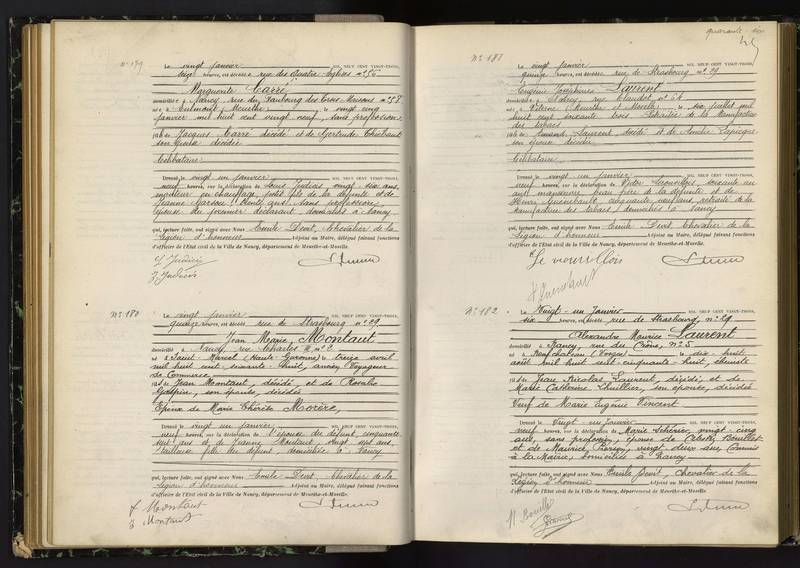 N° 179
Le vingt janvier MIL NEUF CENT VINGT-TROIS,
heures, est décédée rue des Quatre Eglises n° 56
Marguerite Carré,
domiciliée à Nancy, rue du Faubourg des Trois Maisons n° 58
née à Meurthe le vingt cinq
janvier mil huit cent vingt neuf, sans profession
fille de Jacques Carré décédé et de Gertrude
son épouse décédée
Célibataire
Dressé le vingt un janvier MIL NEUF CENT VINGT-TROIS,
neuf heures, sur la déclaration de Louis vingt six ans,
monteur en chauffage, petit fils de la défunte et de
Jeanne trente ans, sans profession,
épouse du premier déclarant, domiciliés à Nancy
qui, lecture faite, ont signé avec Nous Emile Devit, Chevalier de la
Légion d'honneur Adjoint au Maire, délégué faisant fonctions
d'officier de l'Etat civil de la Ville de Nancy, département de Meurthe-et-Moselle.
N° 180
Le vingt janvier MIL NEUF CENT VINGT-TROIS,
quinze heures, est décédé rue de Strasbourg n° 29
Jean Marie, Montaut
domicilié à Nancy, rue Charles III, n° 2
né à Saint Marcel (Haute-Garonne) le treize avril
mil huit cent soixante huit, ancien Voyageur
de Commerce
fils de Jean Montaut, décédé, et de Rosalie
son épouse, décédée
Epoux de Marie Thérèse Morère,
Dressé le vingt un janvier MIL NEUF CENT VINGT-TROIS,
neuf heures, sur la déclaration de l'épouse du défunt, cinquante
sept ans et de Jeanne Montaut, vingt sept ans,
fille du défunt, domiciliée à Nancy
qui, lecture faite, ont signé avec Nous Emile Devit, Chevalier de la
Légion d'honneur Adjoint au Maire, délégué faisant fonctions
d'officier de l'Etat civil de la Ville de Nancy, département de Meurthe-et-Moselle.
Montaut
J Montaut
quarante six
N° 181
Le vingt janvier MIL NEUF CENT VINGT-TROIS,
quinze heures, est décédée rue de Strasbourg n° 29
Eugénie Joséphine Laurent
domiciliée à Nancy, rue n° 24
née à (Meurthe et Moselle) le six juillet mil
huit cent soixante trois, retraitée de la Manufacture
des tabacs
fille de Laurent, décédé et de Amélie
son épouse décédée
Célibataire
Dressé le vingt un janvier MIL NEUF CENT VINGT-TROIS,
neuf heures, sur la déclaration de Victor soixante un
ans, manoeuvre, beau frère de la défunte et de
Henri cinquante neuf ans, retraité de la
manufacture des tabacs, domiciliés à Nancy
qui, lecture faite, ont signé avec Nous Emile Devit, Chevalier de la
Légion d'honneur Adjoint au Maire, délégué faisant fonctions
d'officier de l'Etat civil de la Ville de Nancy, département de Meurthe-et-Moselle.
N° 182
Le Vingt-un Janvier MIL NEUF CENT VINGT-TROIS,
six heures, est décédé rue de Strasbourg, n° 29
Alexandre Maurice Laurent
domicilié à Nancy, rue des n° 25
né à Neufchâteau (Vosges) le dix huit
août mil huit cent cinquante huit,
fils de Jean Nicolas Laurent, décédé, et de
Marie Catherine son épouse, décédée
Veuf de Marie Eugénie Vincent
Dressé le Vingt-un Janvier MIL NEUF CENT VINGT-TROIS,
neuf heures, sur la déclaration de Marie vingt-cinq
ans, sans profession, épouse de
et de Maurice vingt deux ans, Commis
à la Mairie, domiciliés à Nancy
qui, lecture faite, ont signé avec Nous Emile Devit, Chevalier de la
Légion d'honneur Adjoint au Maire, délégué faisant fonctions
d'officier de l'Etat civil de la Ville de Nancy, département de Meurthe-et-Moselle.